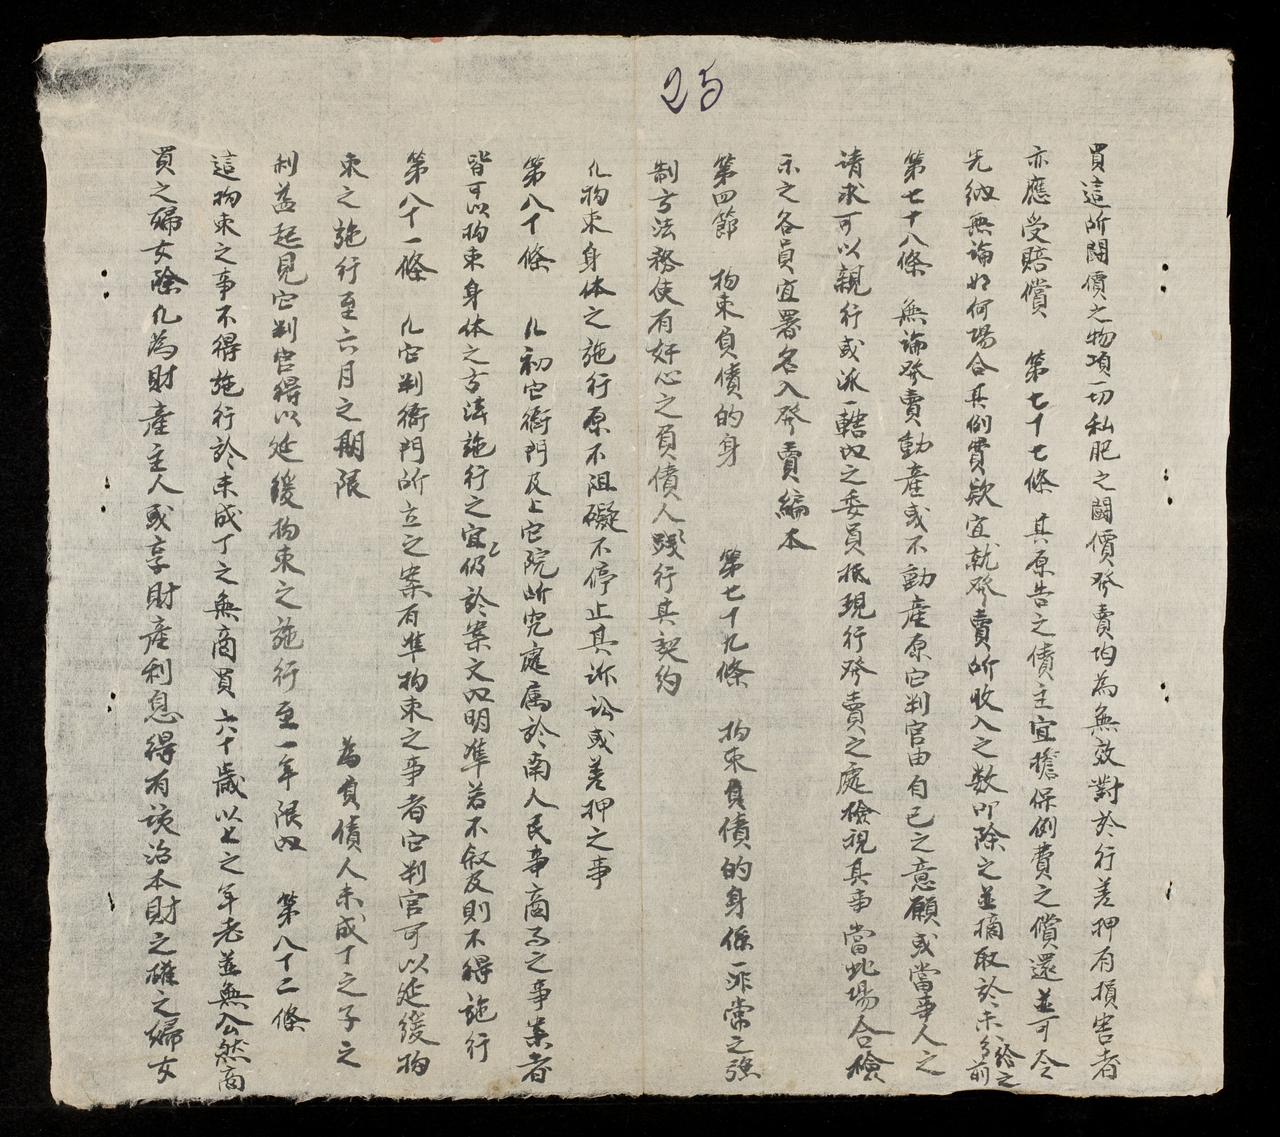 25
買這所鬪價之物項一切私肥之鬪價發賣均為無效對於行差押有損害者
亦應受賠償 第七十七條 其原告之債主宜擔保例費之償還並可令
先納無論如何場合其例費欵宜就發賣所收入之数叩除之並摘取於未分給之前
第七十八條 無論發賣動產或不動產原它判官由自己之意願或當事人之
请求可以親行或派一轄内之委員抵現行發賣之處檢視其事當此場合檢
示之各員宜署名入發賣編本
第四節 拘束負債的身 第七十九條 拘束負債的身係一非常之强
制方法務使有奸心之負債人踐行其契約
凡拘束身体之施行原不阻礙不停止其訴訟或差押之事
第八十條 凡初它衙門及上它院所究處属於南人民事商事之事案者
皆可以拘束身体之方法施行之宜仍於案文内明準若不叙及則不得施行
第八十一條 凡它判衙門所立之案有準拘束之事者它判官可以延缓拘
束之施行至六月之期限 為負債人未成丁之子之
利益起見它判官得以延缓拘束之施行至一年限内 第八十二條
這拘束之事不得施行於未成丁之無商買六十歲以上之年老並無公然商
買之婦女除凡為財產主人或享財產利息得有该治本財之確之婦女